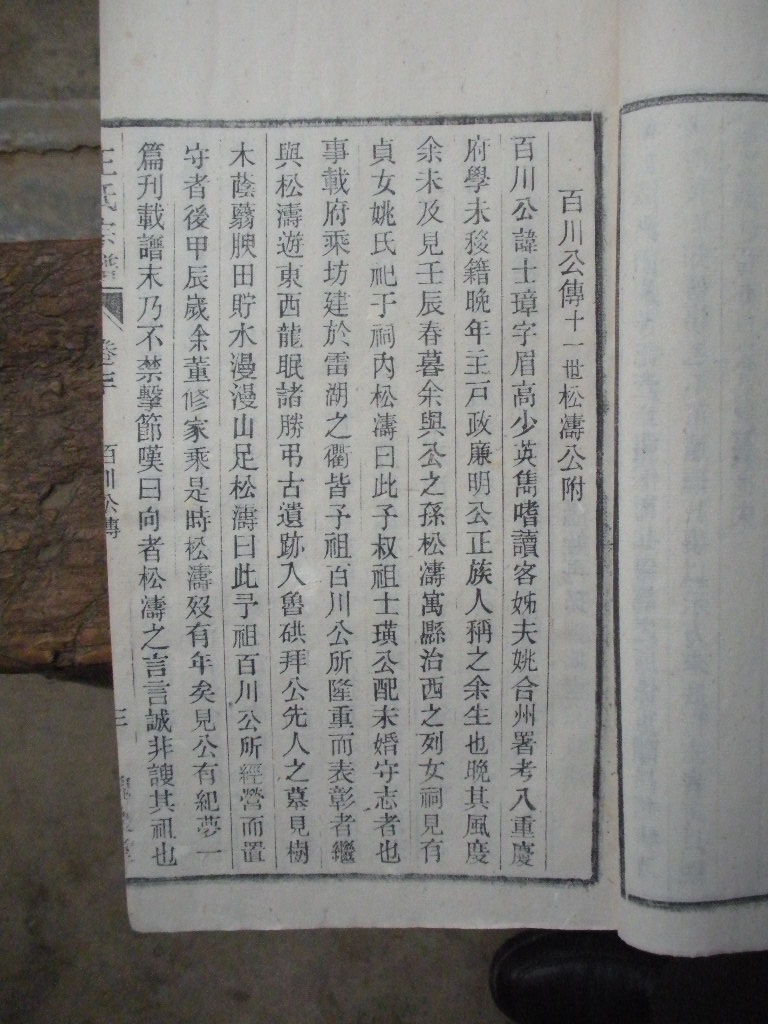 百川公傳十一世松濤公附
百川公諱士璋字眉高少英雋嗜讀客姊夫姚合州署考入重慶
府學未移籍晚年主戸政廉明公正族人稱之余生也晚其風度
余未及見壬辰春暮余與公之孫松濤寓縣治西之列女祠見有
貞女姚氏祀于祠內松濤曰此予叔祖士璜公配未婚守志者也
事載府乘坊建於雷湖之衢皆予祖百川公所隆重而表彰者繼
與松濤遊東西龍眠諸勝弔古遺跡入魯谼拜公先人之墓見樹
木蔭翳腴田貯水漫漫山足松濤曰此予祖百川公所經營而置
守者後甲辰歲余董修家乘是時松濤歿有年矣見公有紀夢一
篇刊載譜末乃不禁擊節嘆曰向者松濤之言言誠非謏其祖也
王氏宗譜 卷三 百川公傳 三